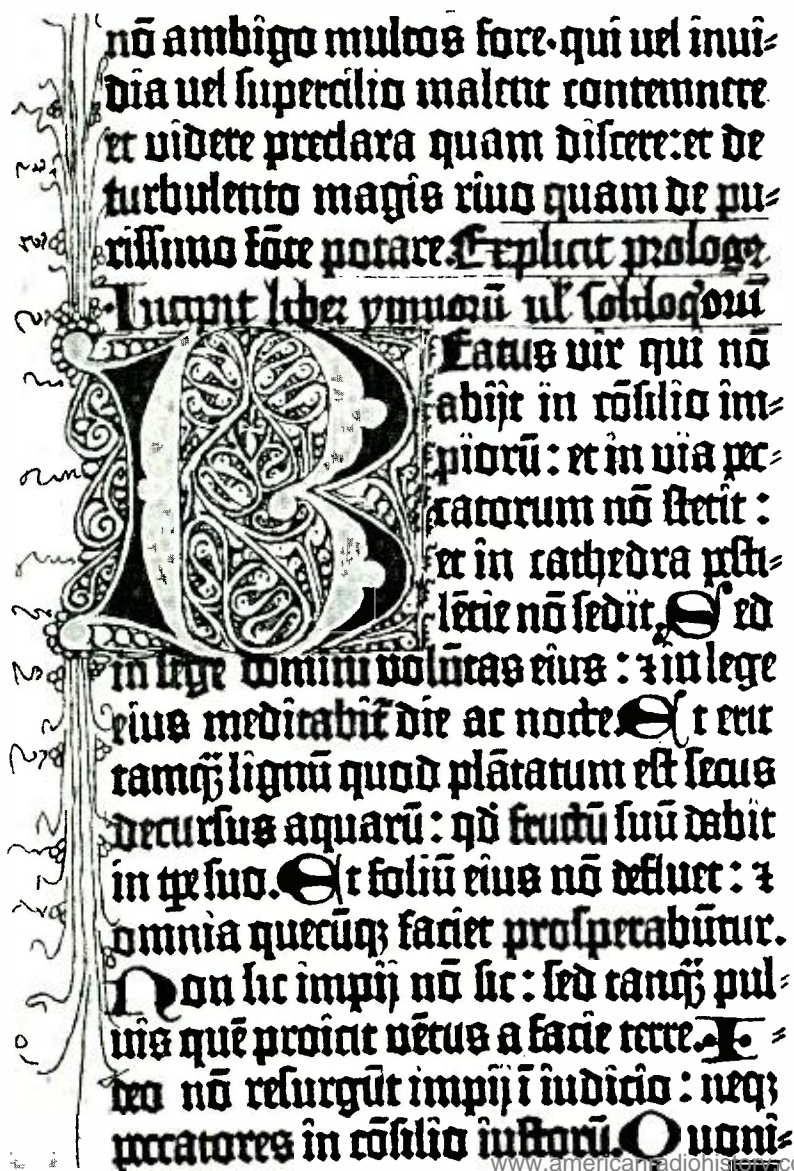 nō ambigo multos fore· qui uel inui⸗
dia uel supercilio malent contemnere
et uidere preclara quam discere: et de
turbulento magis riuo quam de pu⸗
rissimo fōte potare. Explicit prologꝰ
Incipit liber ymnorū ul' soliloqorū
Eatus uir qui nō
abijt in cōsilio im⸗
piorū: et in uia pec⸗
catorum nō stetit:
et in cathedra pesti⸗
lētie nō sedit. Sed
in lege domini volūtas eius: ⁊ in lege
eius meditabit᷑ die ac nocte. Et erit
tamq̄ȝ lignū quod plātatum est secus
decursus aquarū: qd̄ fructū suū dabit
in tp̄e suo. Et foliū eius nō defluet: ⁊
omnia quecūqȝ faciet prosperabūtur.
Non sic impij nō sic: sed tanq̄ȝ pul⸗
uis quē proicit uētus a facie terre. I⸗
deo nō resurgūt impij ī iudicio: neqȝ
peccatores in cōsilio iustorū. Quoni⸗
www.americanradiohistory.co